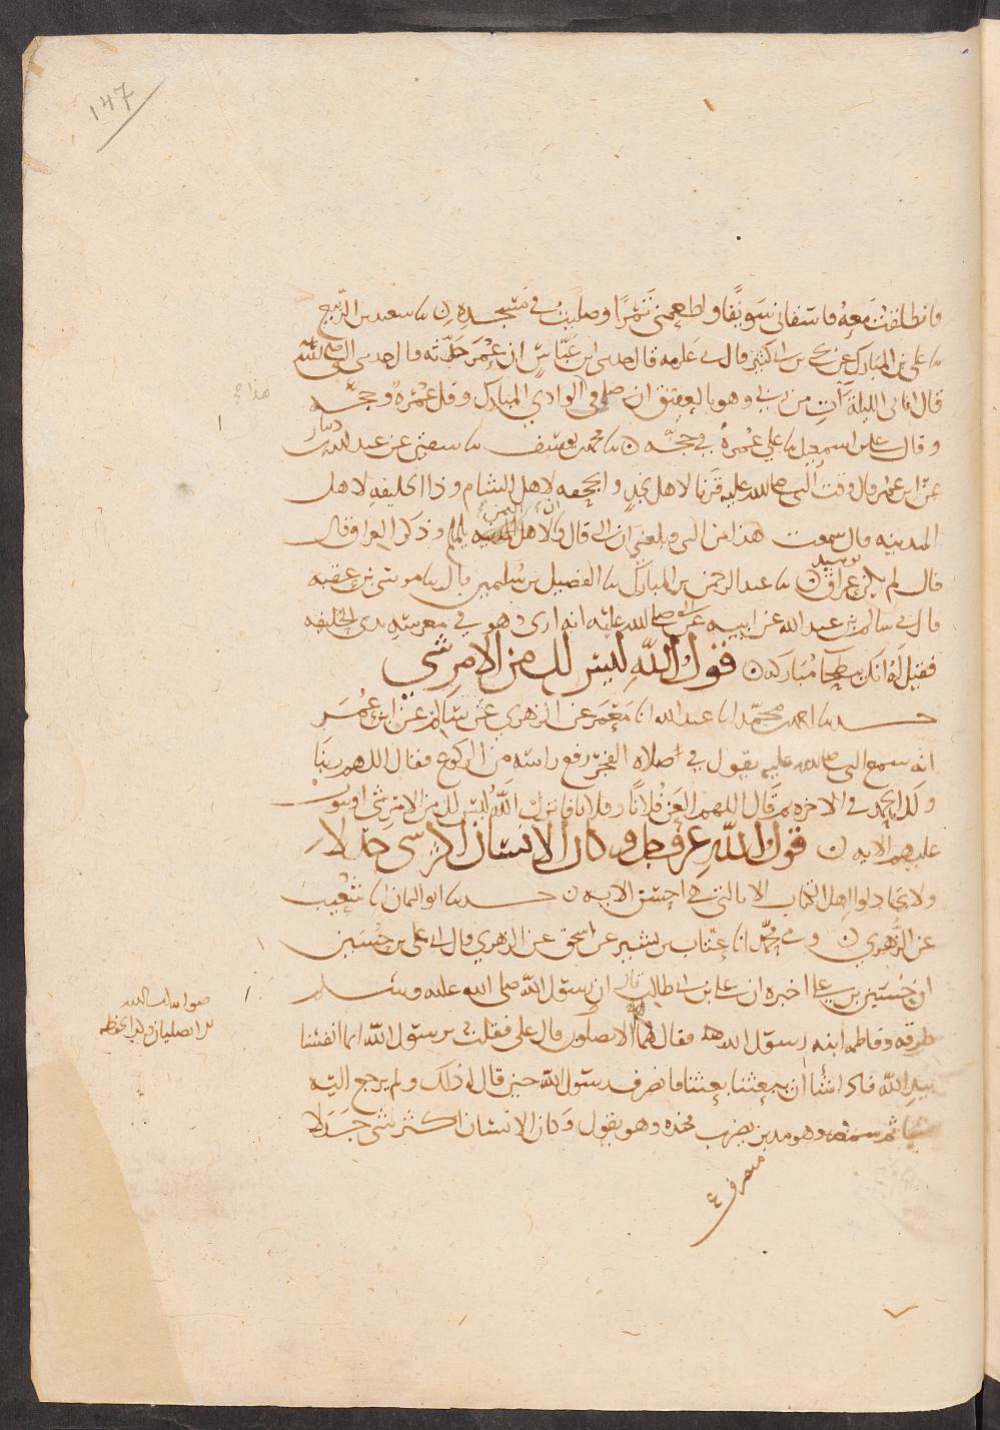 ١٤٧
فانطلقت معه فاسقاني سويقا واطعمني تمرا وصليت في مسجده ن نا سعيد بن الربيع
نا علي بن المبارك عن يحيى بن ابي كثير قال ني عكرمه قال حدثني ابن عباس ان عمر حدثه قال حدثني النبي صلى الله
قال اتاني الليلة آت من ربي وهو بالعقيق ان صل في الوادي المبارك وقل عمرة وحجة
هذا
وقال هرون بن اسمعيل نا علي عمرة في حجة ن نا محمد بن يوسف نا سفين عن عبد الله بن دينار
عن ابن عمر قال وقت النبي صلى الله عليه قرنا لاهل نجد والجحفه لاهل الشام وذا الحليفه لاهل
المدينه قال سمعت هذا من النبي وبلغني ان النبي قال ولاهل اليمن يلملم وذكر العراق قال
قال لم يكن عراق يومئذ ن نا عبد الرحمن بن المبارك نا الفضيل بن سليمن قال نا موسى بن عقبه
قال ني سالم بن عبد الله عن ابيه عن النبي صلى الله عليه انه اري وهو في معرسه بذي الحليفه
فقيل له انك ببطحا مباركه ن قول الله ليس لك من الامر شي
حدثنا احمد بن محمد انا عبد الله انا معمر عن الزهري عن سالم عن ابن عمر
انه سمع النبي صلى الله عليه يقول في صلاه الفجر رفع راسه من الركوع فقال اللهم ربنا
ولك الحمد في الاخره ثم قال اللهم العن فلانا وفلانا فانزل الله ليس لك من الامر شي او يتوب
عليهم الايه ن قول الله عز وجل وكان الانسان اكثر شي جدلا
ولا تجادلوا اهل الكتاب الا بالتي هي احسن الايه ن حدثنا ابو اليمان انا شعيب
عن الزهري ن وني محمد انا عتاب بن بشير عن اسحق عن الزهري قال اني علي بن حسين
ان حسين بن علي اخبره ان علي بن ابي طالب قال ان رسول الله صلى الله عليه وسلم
طرقه وفاطمه ابنه رسول الله فقال لهما الا تصلون قال علي فقلت يا رسول الله انما انفسنا
بيد الله فاذا شا ان يبعثنا بعثنا فانصرف رسول الله حين قال له ذلك ولم يرجع اليه
شيا ثم سمعه وهو مدبر يضرب فخذه وهو يقول وكان الانسان اكثر شي جدلا